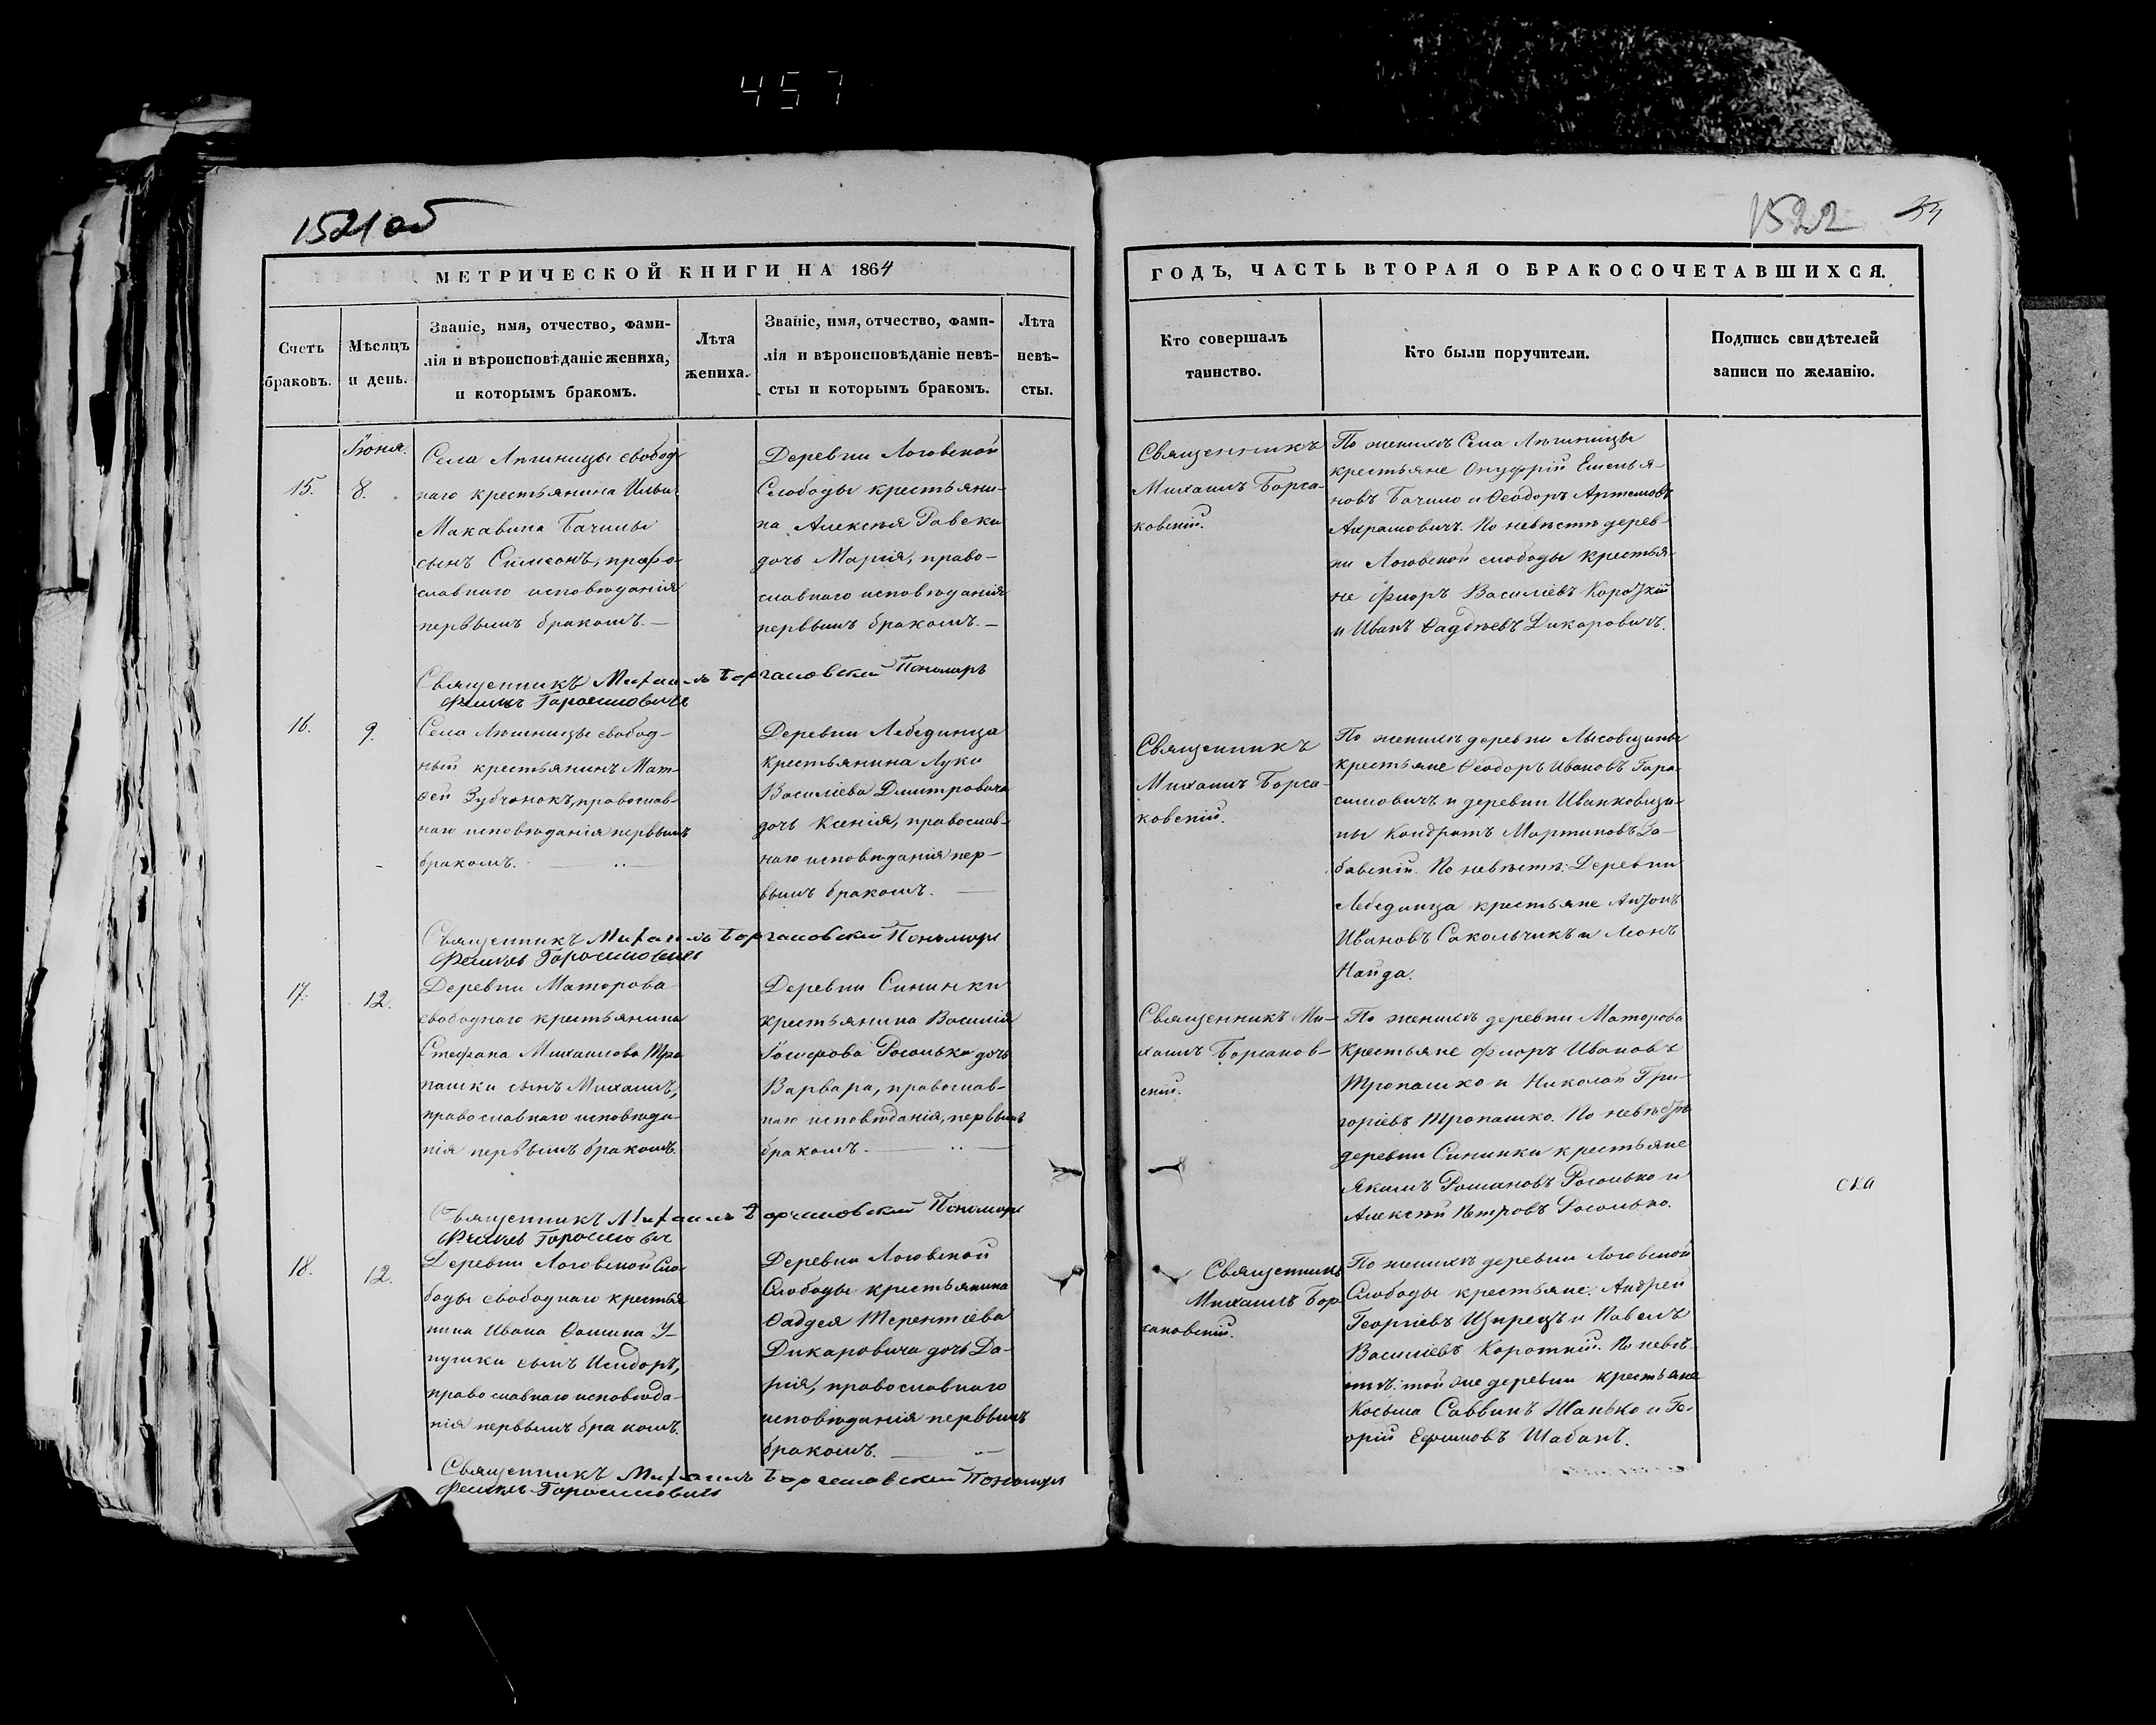 457
1521 об
1522
МЕТРИЧЕСКОЙ КНИГИ НА 1864
Счетъ
браковъ.
Мѣсяцъ
и день.
Званіе, имя, отчество, фами-
лія и вѣроисповѣданіе жениха,
и которымъ бракомъ.
Лѣта
жениха.
Званіе, имя, отчество, фами-
лія и вѣроисповѣданіе невѣ-
сты и которымъ бракомъ.
Лѣта
невѣ-
сты.
ГОДЪ, ЧАСТЬ ВТОРАЯ О БРАКОСОЧЕТАВШИХСЯ.
Кто совершалъ
таинство.
Кто были поручители.
Подпись свидѣтелей
записи по желанію.
Іюня.
15.
8.
Села Лѣшницы свобод
наго крестьянина Ильи
Бачилы
сынъ Симеонъ, право-
славнаго исповѣданія
первымъ бракомъ. —
Деревни Логовской
Слободы крестьяни-
на Алексѣя
дочь Марія, право-
славнаго исповѣданія
первымъ бракомъ. —
Священникъ
Михаилъ
По женихѣ Села Лѣшницы
крестьяне Онуфрій Емелья-
новъ Бачило и Ѳеодоръ Артемовъ
Ахрамовичъ. По невѣстѣ дерев-
ни Логовской слободы крестья-
не Флоръ Василіевъ Короткій
и Иванъ Ѳаддѣевъ Дикаровичъ.
Священникъ Михаилъ Пономарь
Гарасимовичъ
16.
9.
Села Лѣшницы свобод-
ный крестьянинъ Мат-
ѳей Зубчонокъ, православ-
наго исповѣданія первымъ
бракомъ.
Деревни Лебединца
крестьянина Луки
Василіева Дмитровича
дочь Ксенія, православ-
наго исповѣданія пер-
вымъ бракомъ. —
Священникъ
Михаилъ
По женихѣ деревни Лысовщины
крестьяне Ѳеодоръ Ивановъ Гара-
симовичъ и деревни Иванковщи-
ны Кондратъ Мартиновъ За-
бавскій. По невѣстѣ: Деревни
Лебединца крестьяне Антонъ
Ивановъ Сакольчикъ и Леонъ
Найда.
Священникъ Михаилъ Пономарь
Гарасимовичъ
17.
12.
Деревни Маторова
свободнаго крестьянина
Стефана Михаилова Тро
пашки сынъ Михаилъ,
православнаго исповѣда-
нія первымъ бракомъ.
Деревни Сининки
крестьянина Василія
Іосифова Росолька дочь
Варвара, православ-
наго исповѣданія, первымъ
бракомъ.
Священникъ Ми-
хаилъ
По женихѣ деревни Маторова
крестьяне Флоръ Ивановъ
Тропашко и Николай Гри-
горіевъ Тропашко. По невѣстѣ
деревни Сининки крестьяне
Якимъ Романовъ Росолько и
Алексѣй Петровъ Росолько.
Священникъ Михаилъ Пономарь
Гарасимовичъ
18.
12.
Деревни Логовской Сло
боды свободнаго крестья
нина Ивана Ѳомина
сынъ Исидоръ,
православнаго исповѣда-
нія первымъ бракомъ.
Деревни Логовской
Слободы крестьянина
Ѳаддея Терентіева
Дикаровича дочь Да-
рія, православнаго
исповѣданія первымъ
бракомъ.
Священникъ
Михаилъ
По женихѣ деревни Логовской
Слободы крестьяне: Андрей
Георгіевъ и Павелъ
Василіевъ Короткій. По невѣ-
стѣ: той же деревни крестьяне
Косьма Саввинъ Шанько и Ге-
оргій Ефимовъ Шабанъ.
Священникъ Михаилъ Пономарь
Гарасимовичъ